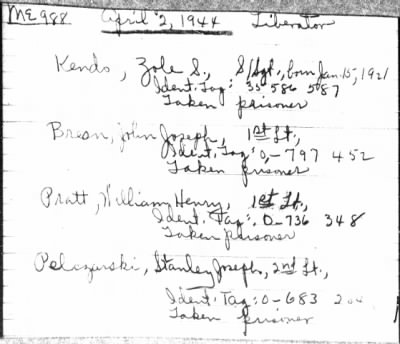 ME 988 April 2, 1944 Liberator
Kends, Zole S., S/Sgt., born Jan. 15, 1921
Ident. Tag: 35 586 587
Taken prisoner
Bresn, John Joseph, 1st Lt.,
Ident. Tag: O-797 452
Taken prisoner
Pratt, William Henry, 1st Lt.,
Ident. Tag: O-736 348
Taken prisoner
Pelczarski, Stanley Joseph, 2nd Lt.,
Ident. Tag: O-683
Taken prisoner